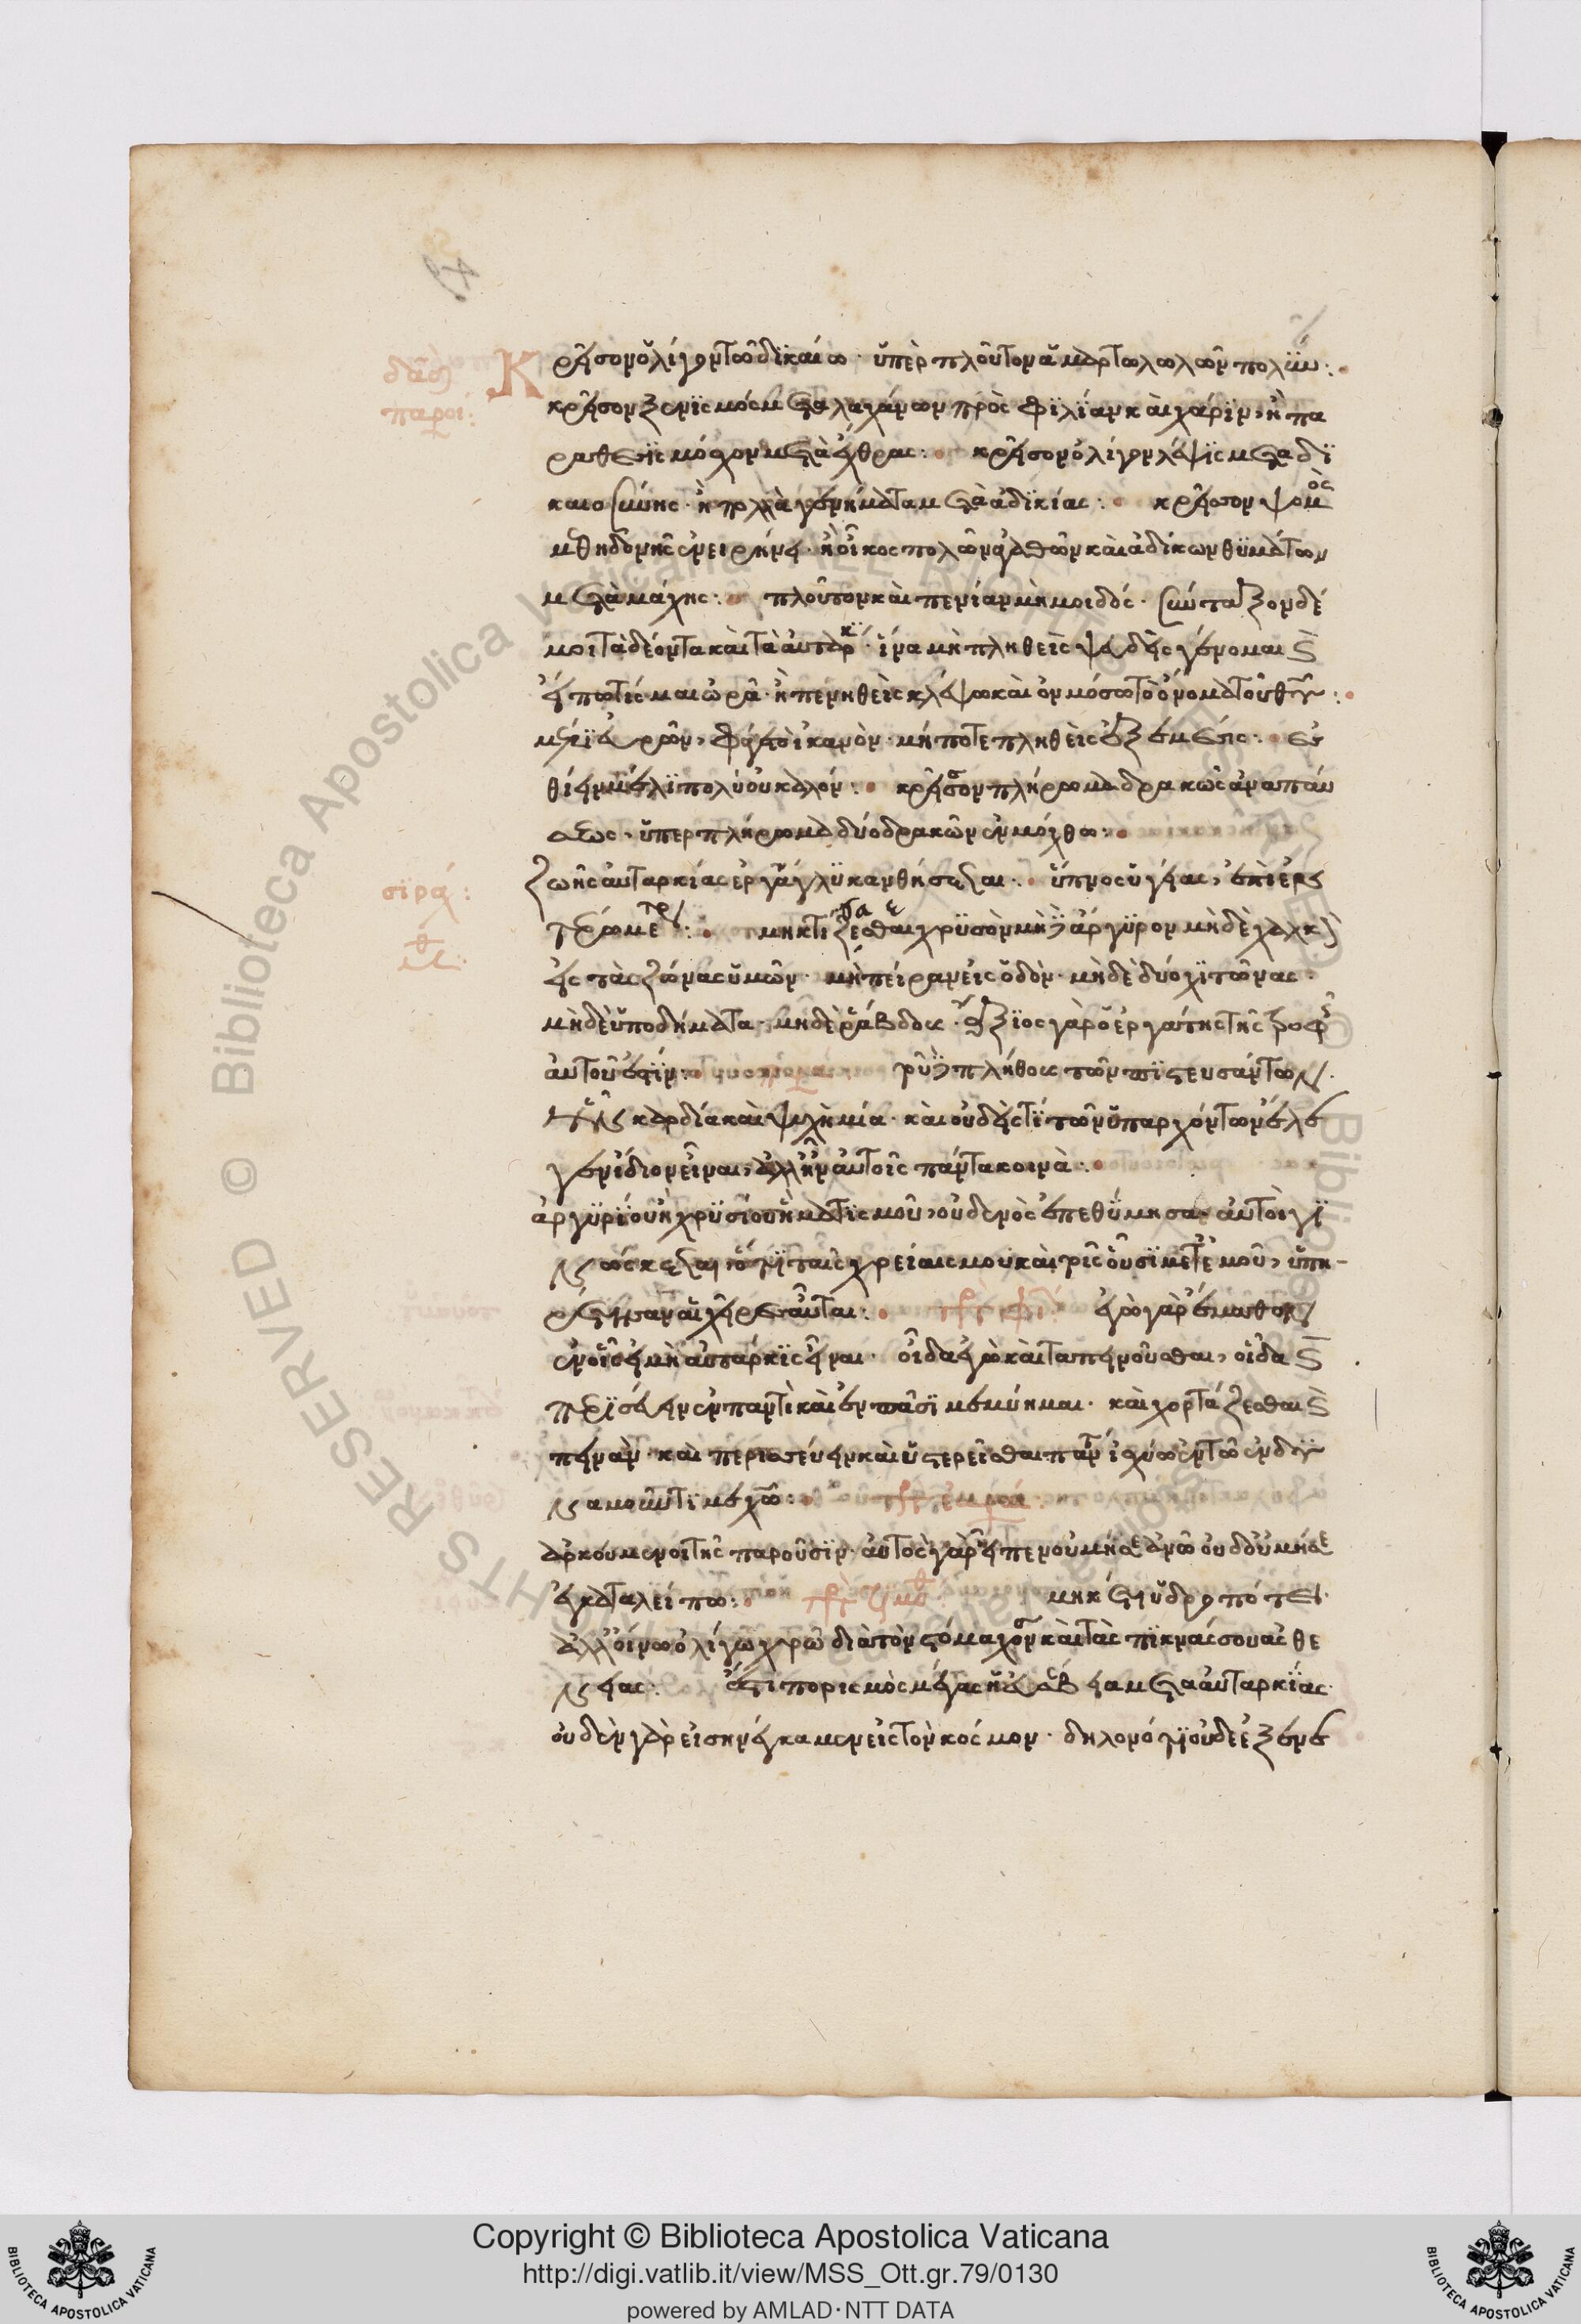 δαδ
παροι:
Κρεῖσον ὀλίγον τῶ δικαίω · ὑπὲρ πλοῦτον ἁμαρτωλωλῶν πολύν:
κρεῖσον ξενισμὸς μετα λαχάνων πρὸς φιλίαν καὶ χάριν, ἢ πα
ραθεσις μόσχον μετὰ ἔχθρας: κρεῖσον ὀλίγον λείψις μετα δι
καιοσύνης · ἢ πολλὰ γενήματα μετὰ ἀδικίας: κρεῖσον ψομὸς
μεθ ηδονῆς ἐν ειρήνη · ἢ οἶκος πολῶν ἀγαθῶν καὶ ἀδίκων θυμάτων
μετὰ μάχης: πλοῦτον καὶ πενίαν μὴ μοι δός · σύνταξον δέ
μοι τὰ δέοντα καὶ τὰ αὐταρκ · ἵνα μὴ πληθεὶς ψευδὴς γένομαι καὶ
εἴπω τίς μαι ὡρᾶ · ἢ πενηθεὶς κλέψω καὶ ὀνμόσω τὸ ὄνομα τοῦ θυ:
μέλι εὑρῶν, φάγε τὸ ἱκανὸν · μή ποτε πληθεὶς ἐξεμέσης: εσ
θίειν μέλι πολύ οὐ καλόν: κρεῖσσον πλήρωμα δρακὼς ἀναπαύ
σεως · ὑπερ πλήρωμα δύο δρακῶν ἐν μόχθω:
σιρά:
ζωῆς ἀυταρκίας ἐργά γλυκανθήσεται: ὕπνος ὑγείας, ἐπὶ ἐντέρω
μετρίω: μη κτίσησθε χρυσὸν μὴ δὲ ἀργυρον μὴ δὲ χαλκὸν
εἰς τὰς ζώνας ὑμῶν · μὴ πείραν εἰς ὁδὸν · μὴ δὲ δύο χιτῶνας:
μὴ δὲ ὑποδήματα · μηδὲ ῥάβδους · ἄξιος γὰρ ὁ ἐργάτης τῆς τροφῆς
ἀυτοῦ ἐστίν: τοῦ δὲ πλήθους τῶν πιστευσάντων
ἦν καρδία καὶ ψυχὴ μία · καὶ οὐδείς τί τῶν ὑπαρχόντων ἔλε
γεν ίδιον εἶναι, ἀλλ' ἦν αὐτοῖς πάντα κοινὰ:
ἀργυρίου ἢ χρυσίου ἢ ματισμοῦ, οὐδενὸς ἐπεθύμησα · αὐτοὶ γι
νώσκεται ὅτι ταῖς χρείαις μου καὶ τοῖς οὖσι μετ' ἐμοῦ, ὑπη-
ρέτησαν αἱ χεῖρες αὗται: ἐγὼ γὰρ ἔμαθον
ἐν οἷς εἰμὴ αὐτάρκις εἶναι · οἶδα ἐγὼ καὶ ταπεινοῦσθαι, οἶδα καὶ
περισέυειν ἐν παντὶ καὶ ἐν πᾶσι μεμύημαι · καὶ χορτάζεσθαι καὶ
πεινᾶν · καὶ περισσεύειν καὶ ὑστερεῖσθαι πάντα ἰσχύω ἐν τῶ ἐνδυ
ναμοῦντί με χῶ:
ἀρκούμενοι τῆς παροῦσιν · ἀυτὸς γὰρ εἴπεν οὐ μή σε ἀνῶ ουδ' οὐ μή σε
ἐγκαταλείπω: μηκέτι ὑδροπότει
ἀλλ' οἴνω ὀλίγω χρῶ διὰ τὸν στόμαχόν σου καὶ τὰς πικνάς σου ἀσθε
νείας: ἔστι πορισμὸς μέγας ἡ εὐσέβεια μετα ἀυταρκίας
οὐδὲν γὰρ εἰσηνέγκαμεν εἰς τὸν κόσμον · δηλονότι οὐδε ἐξενε
Copyright © Biblioteca Apostolica Vaticana
http://digi.vatlib.it/view/MSS_Ott.gr.79/0130
powered by AMLAD·NTT DATA